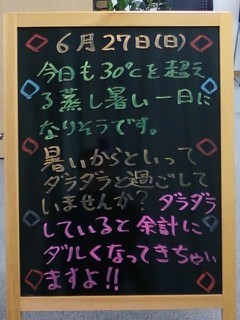 6月27日(日)
今日も30℃を超え
る蒸し暑い一日に
なりそうです。
暑いからといって
ダラダラと過ごして
いませんか？ダラダラ
していると余計に
ダルくなってきちゃい
ますよ!!